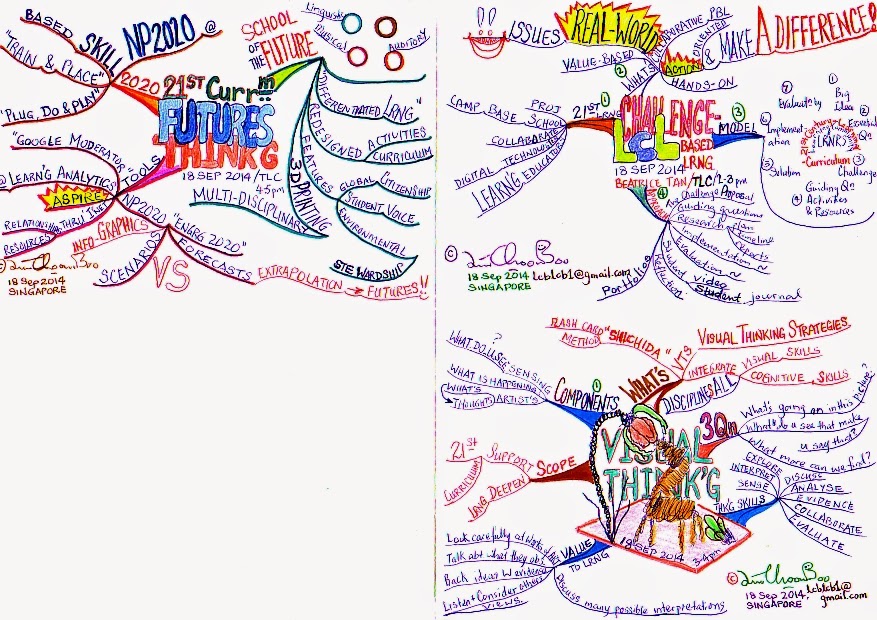 BASED
SKILL
NP2020 @
"TRAIN & PLACE"
2020
"PLUG, DO & PLAY"
SCHOOL
OF THE
FUTURE
Linguistic
Musical
Auditory
21ST Currm
FUTURES
THINK'G
18 SEP 2014/TLC
4-5pm
"DIFFERENTIATED LRNG"
REDESIGNED ACTIVITIES
CURRICULUM
FEATURES
3D PRINTING
GLOBAL CITIZENSHIP
STUDENT VOICE
ENVIRONMENTAL
STEWARDSHIP
MULTI-DISCIPLINARY
"GOOGLE MODERATOR
TOOLS
@ LEARN'G ANALYTICS
ASPIRE
RELATIONSHIP THRU INET
RESOURCES
NP2020
INFO-GRAPHICS
"ENGRG 2020"
SCENARIOS
VS
FORECASTS
EXTRAPOLATION → FUTURES!!
© Lim Choon Boo
18 Sep 2014
SINGAPORE
ISSUES
REAL-WORLD
COLLABORATIVE
PBL
ORIENTED
ACTION
& MAKE
A DIFFERENCE!
VALUE-BASED
WHAT'S
HANDS-ON
2
CAMP BASE
PROJ
SCHOOL
21ST LRNG
1
COLLABORATE
DIGITAL TECHNOLOGY
LEARNG EDUCATOR
CHALLENGE-
BASED
LRNG
LcL
18 SEP 2014
BEATRICE TAN/TLC/2-3pm
3
MODEL
1 Big
Idea
2 Essential
Qn
3 Challenge
Guiding Qn
4 Activities
& Resources
5 Solution
6 Implement
ation
7 Evaluate by
21st Century
LRNR's
Curriculum
4
Challenge Proposal
Guiding Questions
Research plan
Implementation Timeline
reports
Evaluation ~
Student video
Student journal
Reflection
Portfolio
© Lim Choon Boo
18 Sep 2014 lcblcb1@gmail.com
SINGAPORE
FLASH CARD
METHOD
"SHICHIDA"
WHAT'S
VTS
VISUAL THINKING STRATEGIES
INTEGRATE
VISUAL SKILLS
COGNITIVE SKILLS
DISCIPLINES ALL
WHAT DO U SEE?
SENSING
WHAT IS HAPPENING
WHAT'S
ARTIST'S
THOUGHTS
COMPONENTS
1
21ST
CURRICULUM
SUPPORT
LRNG DEEPEN
SCOPE
VISUAL
THINK'G
18 SEP 2014
3-4pm
3Qn
What's going on in this picture?
What do u see that make
u say this?
What more can we find?
THKG SKILLS
EXPLORE
INTERPRET
SENSE
DISCUSS
ANALYSE
EVIDENCE
COLLABORATE
EVALUATE
VALUE
TO LRNG
Look carefully at works of Art
Talk abt what they obs
Back ideas w evidence
Listen + Consider others
views.
Discuss many possible interpretations
© Lim Choon Boo
18 Sep 2014, lcblcb1@
SINGAPORE gmail.com